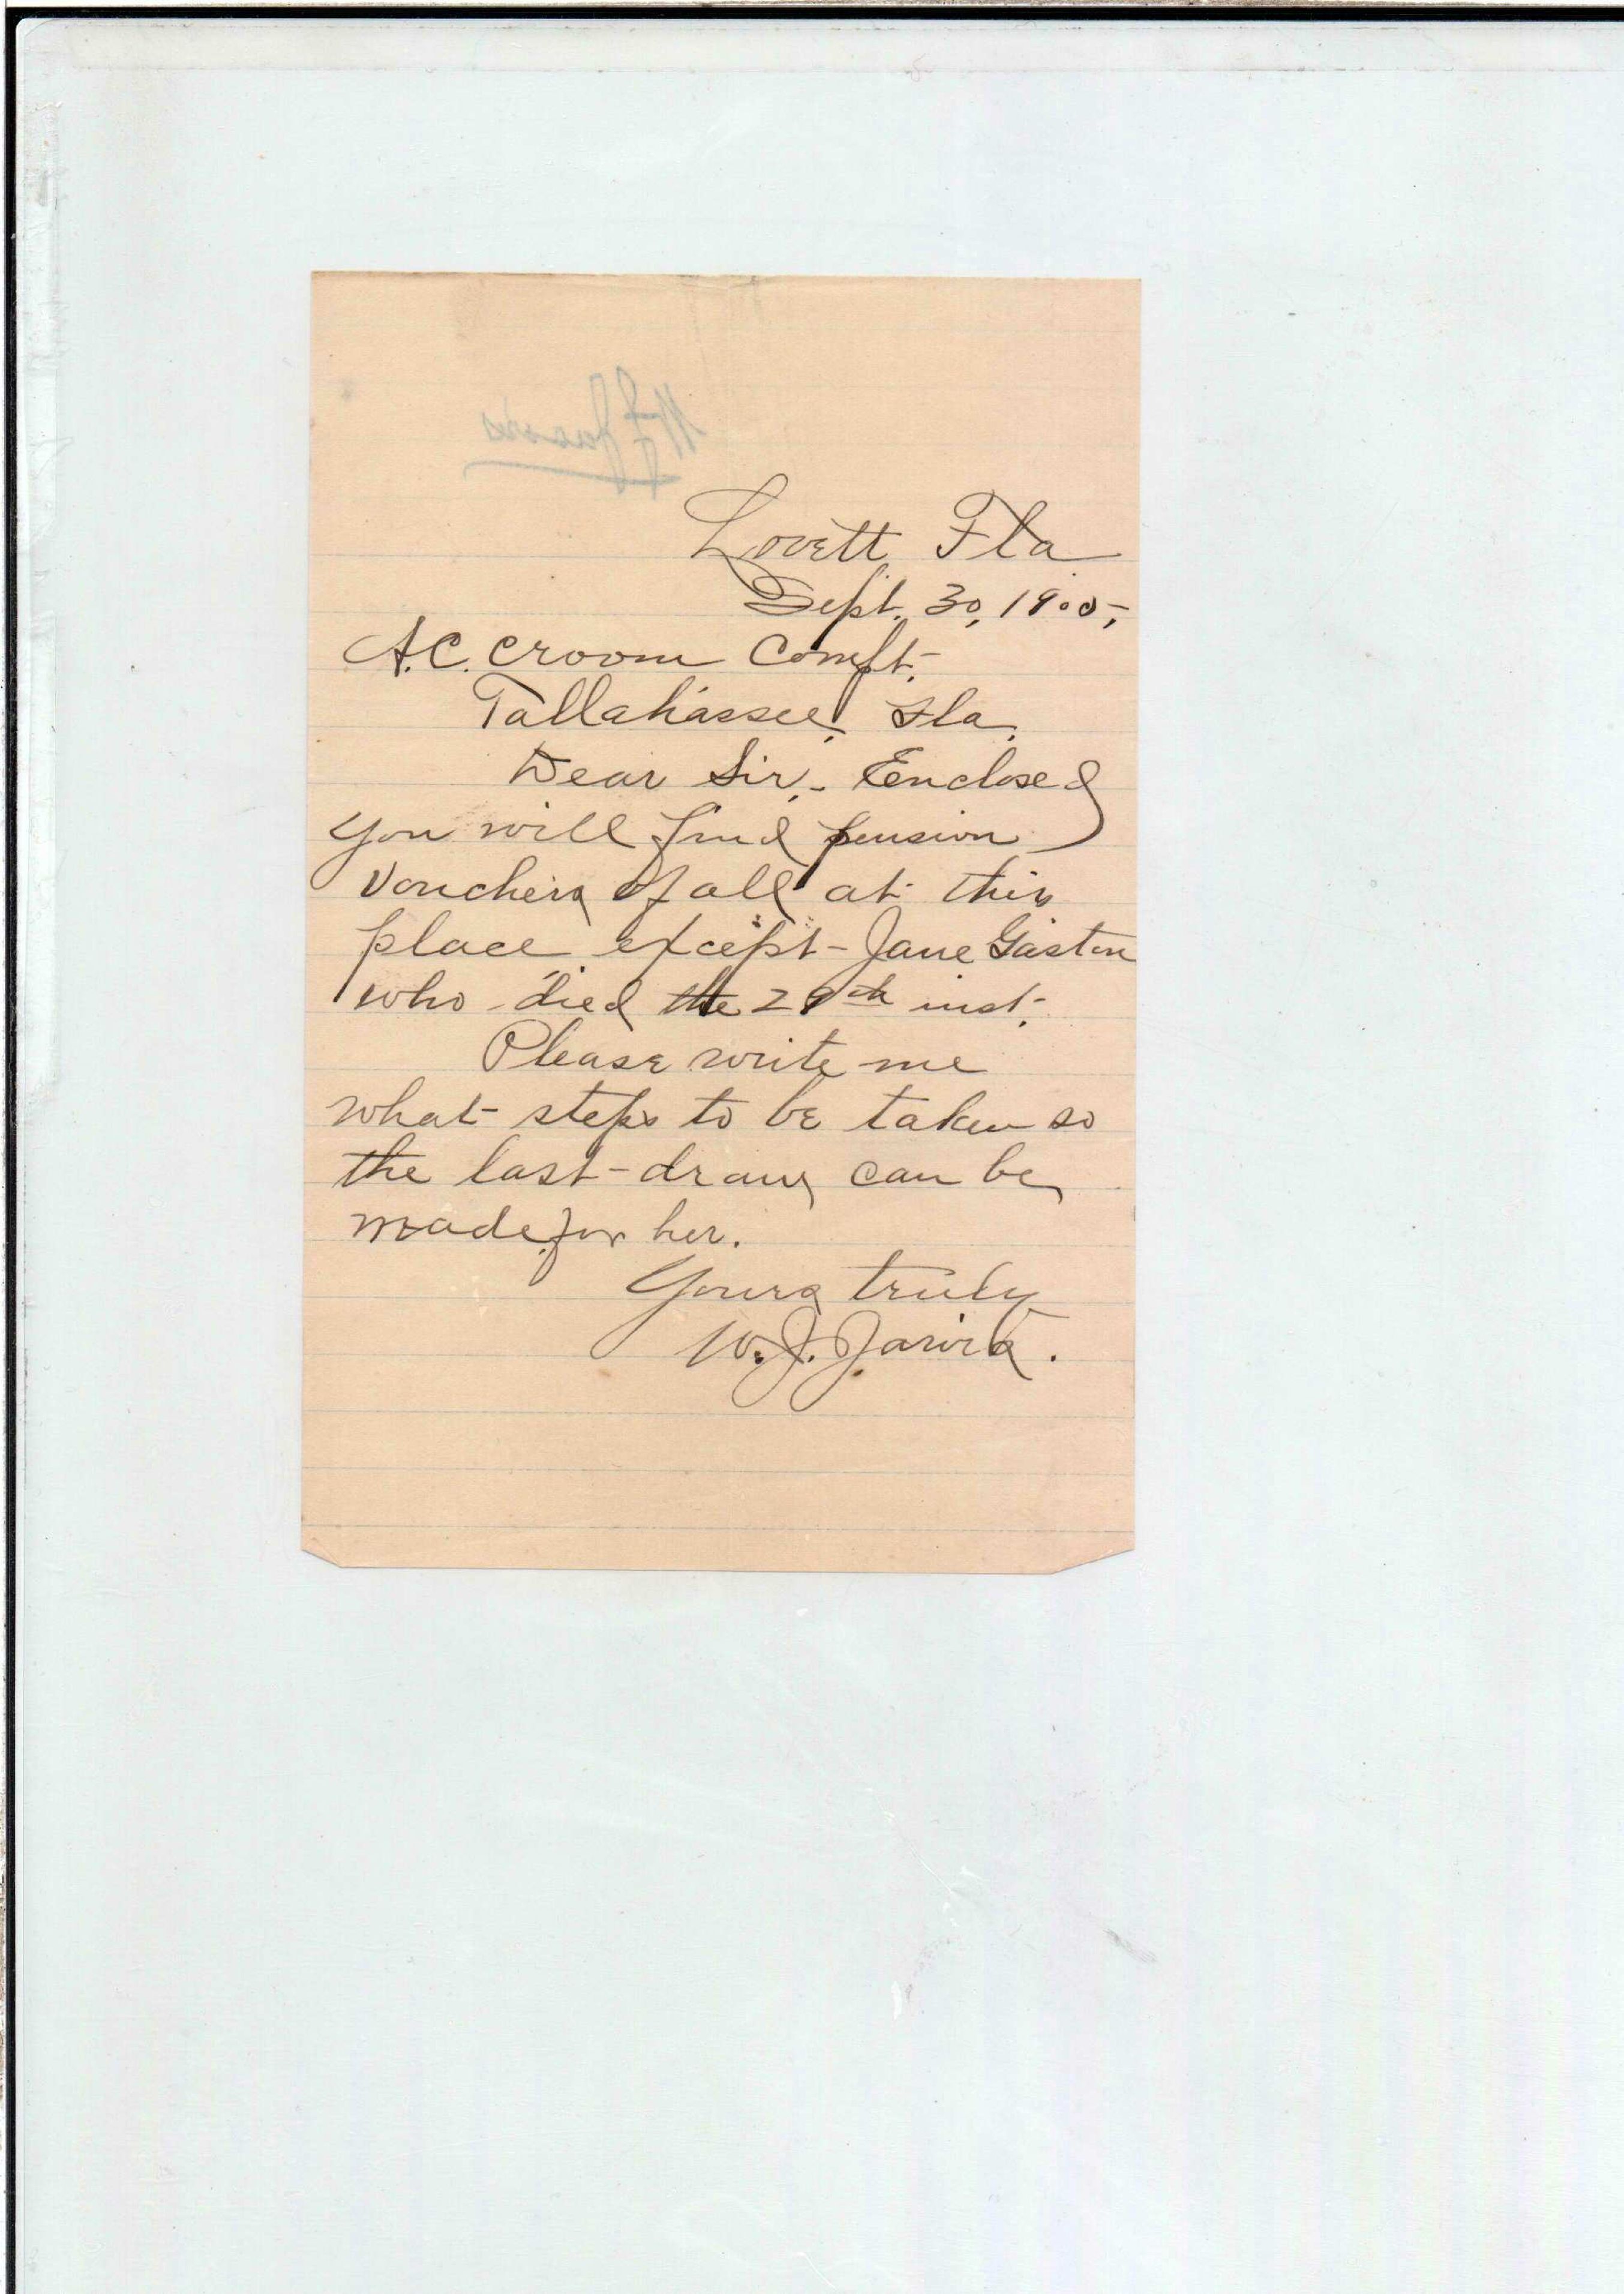 W J Jarvis
Lovett, Fla
Sept. 30, 1900,
A. C. Croom Compt.
Tallahassee, Fla.
Dear Sir,- Enclosed
you will find pension
vouchers of all at this
place except Jane Gaston
who died the 29th inst.
Please write me
what steps to be taken so
the last draw can be
made for her.
Yours truly
W. J. Jarvis.